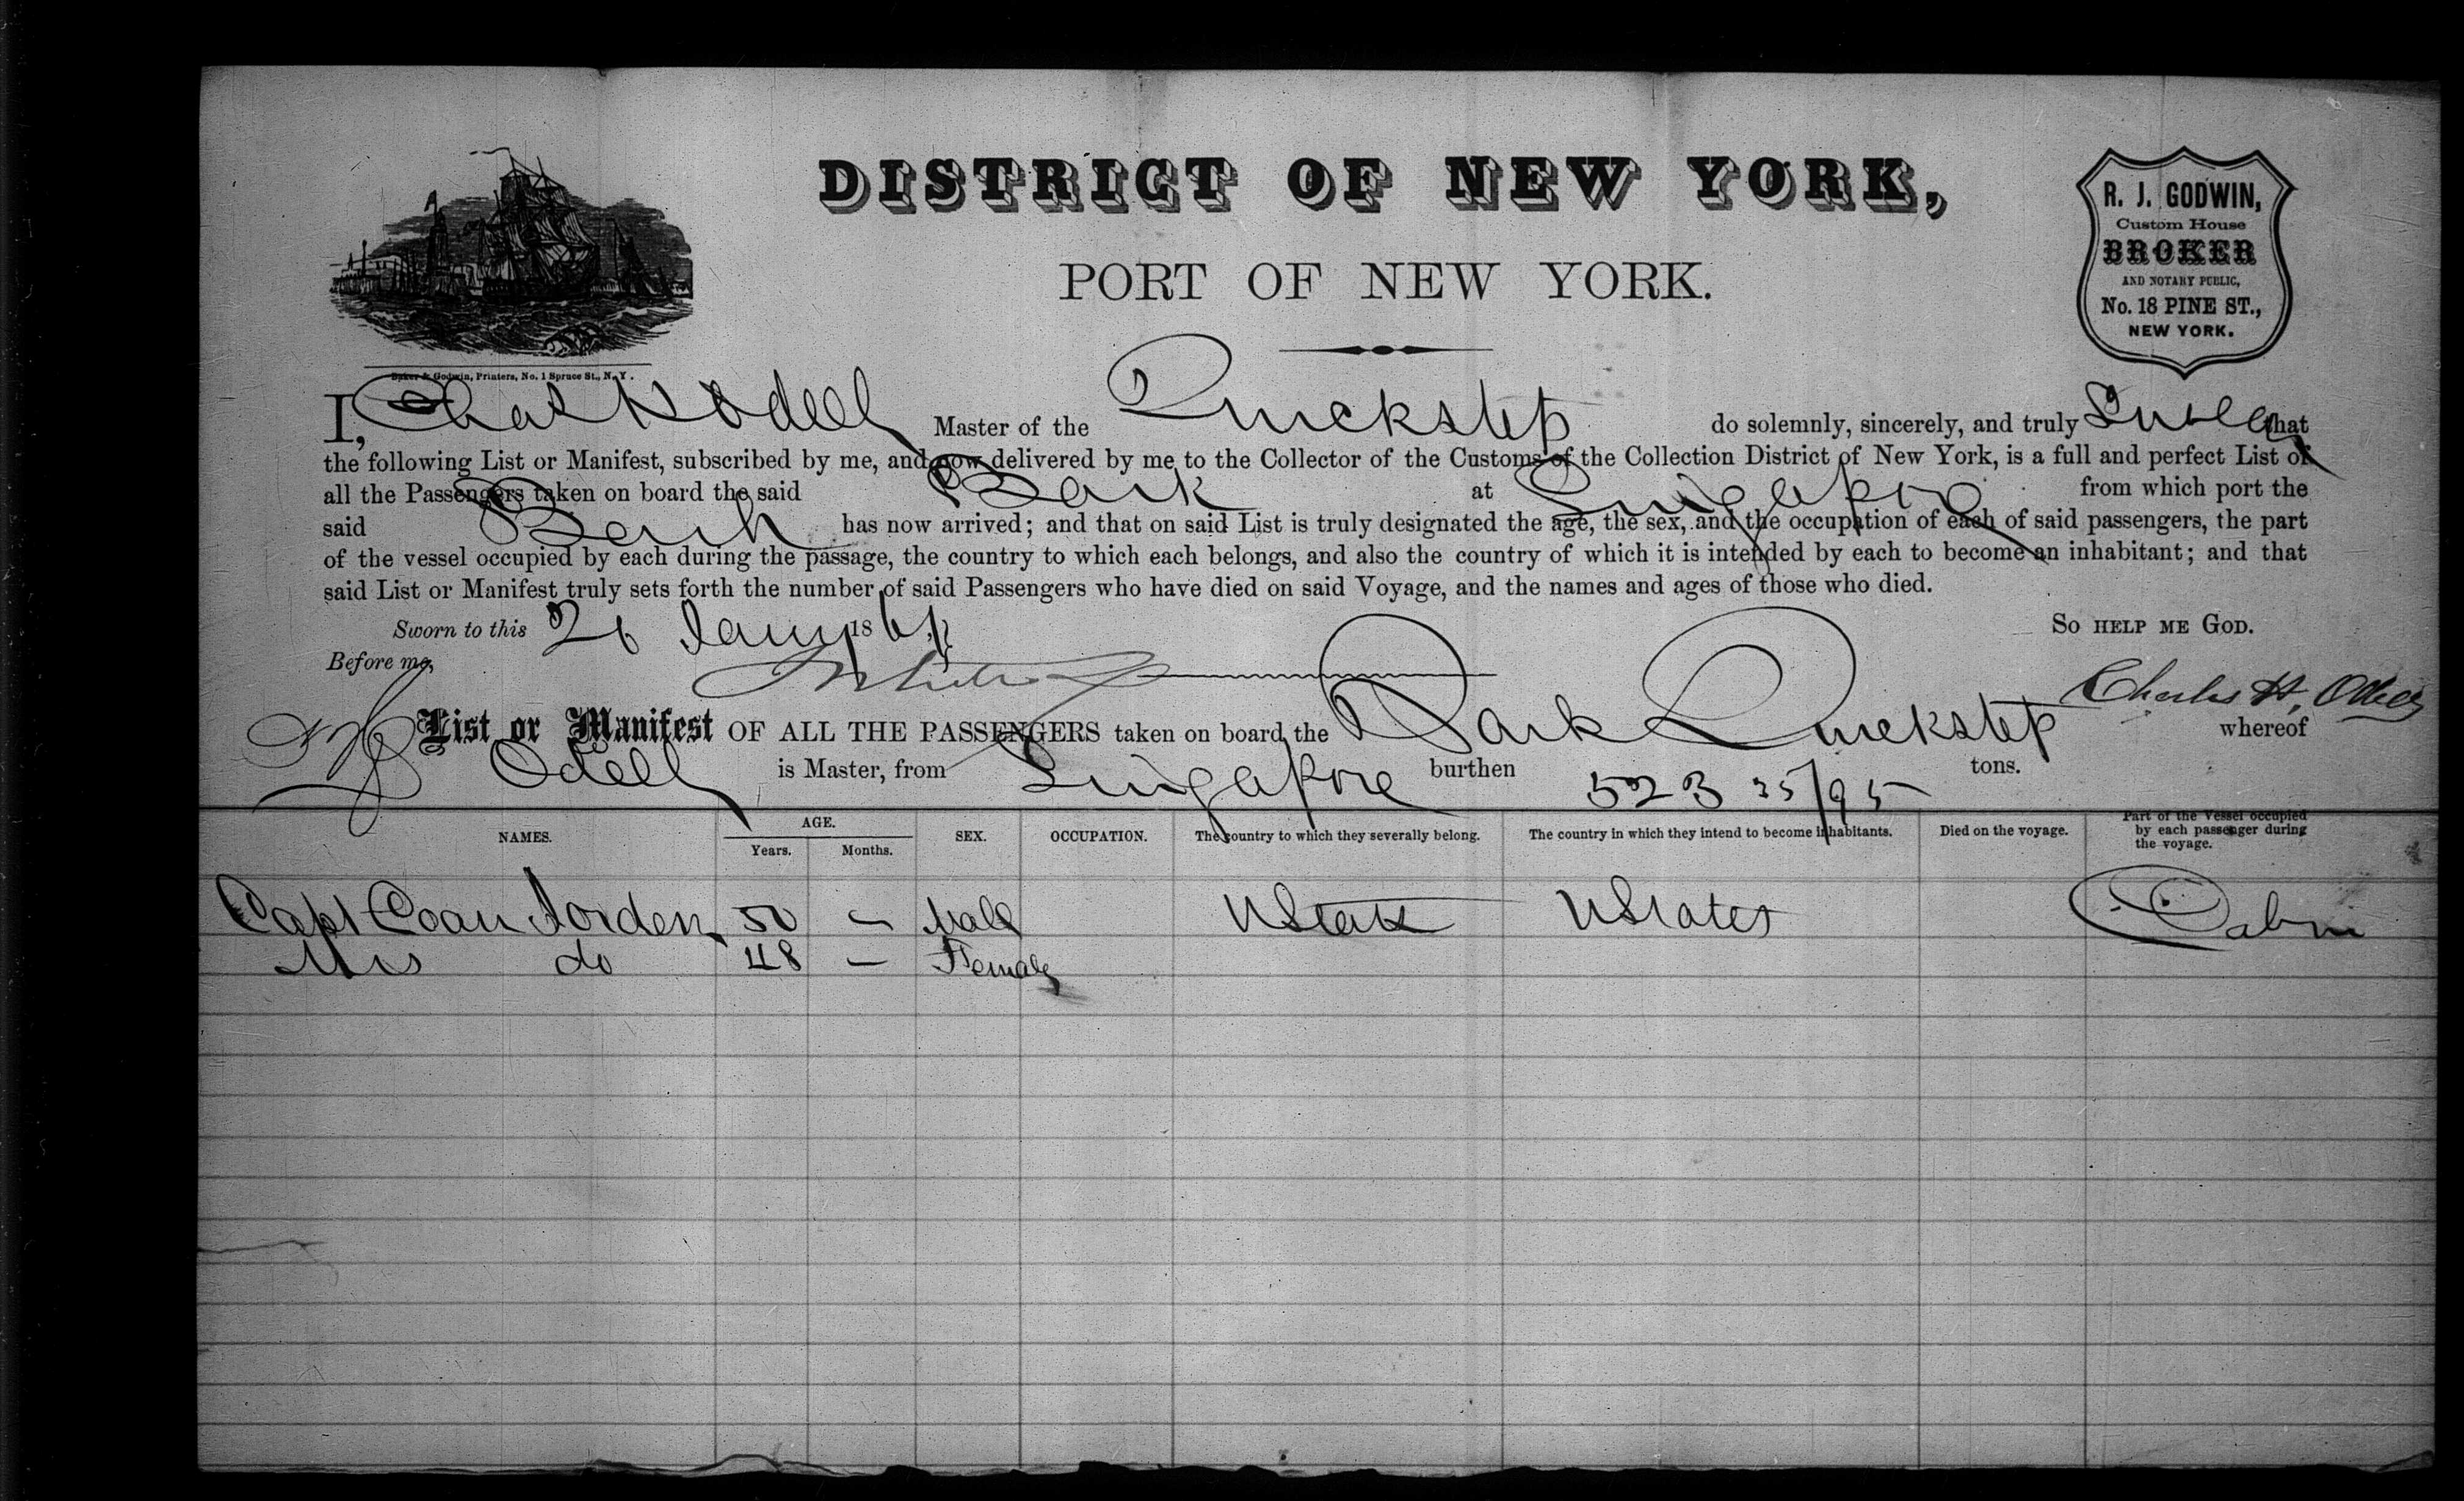 DISTRICT OF NEW YORK,
PORT OF NEW YORK.
R. J. GODWIN,
Custom House
BROKER
AND NOTARY PUBLIC,
No. 18 PINE ST.,
NEW YORK.
Baker & Godwin, Printers, No. 1 Spruce St., N. Y.
I, Chas H Odell Master of the Quickstep do solemnly, sincerely, and truly Swear that
the following List or Manifest, subscribed by me, and now delivered by me to the Collector of the Customs of the Collection District of New York, is a full and perfect List of
all the Passengers taken on board the said Bark at Singapore from which port the
said Bark has now arrived; and that on said List is truly designated the age, the sex, and the occupation of each of said passengers, the part
of the vessel occupied by each during the passage, the country to which each belongs, and also the country of which it is intended by each to become an inhabitant; and that
said List or Manifest truly sets forth the number of said Passengers who have died on said Voyage, and the names and ages of those who died.
Sworn to this 26 Jany 186
So help me God.
Before me,
Charles H. Odell
List or Manifest OF ALL THE PASSENGERS taken on board the Bark Quickstep whereof
Odell is Master, from Singapore burthen 523 35/95 tons.
NAMES. AGE. Years. Months. SEX. OCCUPATION. The country to which they severally belong. The country in which they intend to become inhabitants. Died on the voyage. Part of the Vessel occupied by each passenger during the voyage.
Capt Coan Jorden 50 — Male UStates UStates Cabin
Mrs do 48 — Female